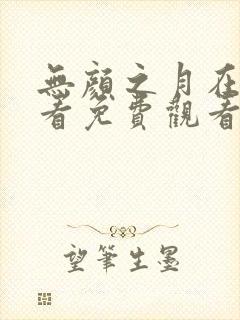 無顏之月在
看免費觀看
望筆生墨